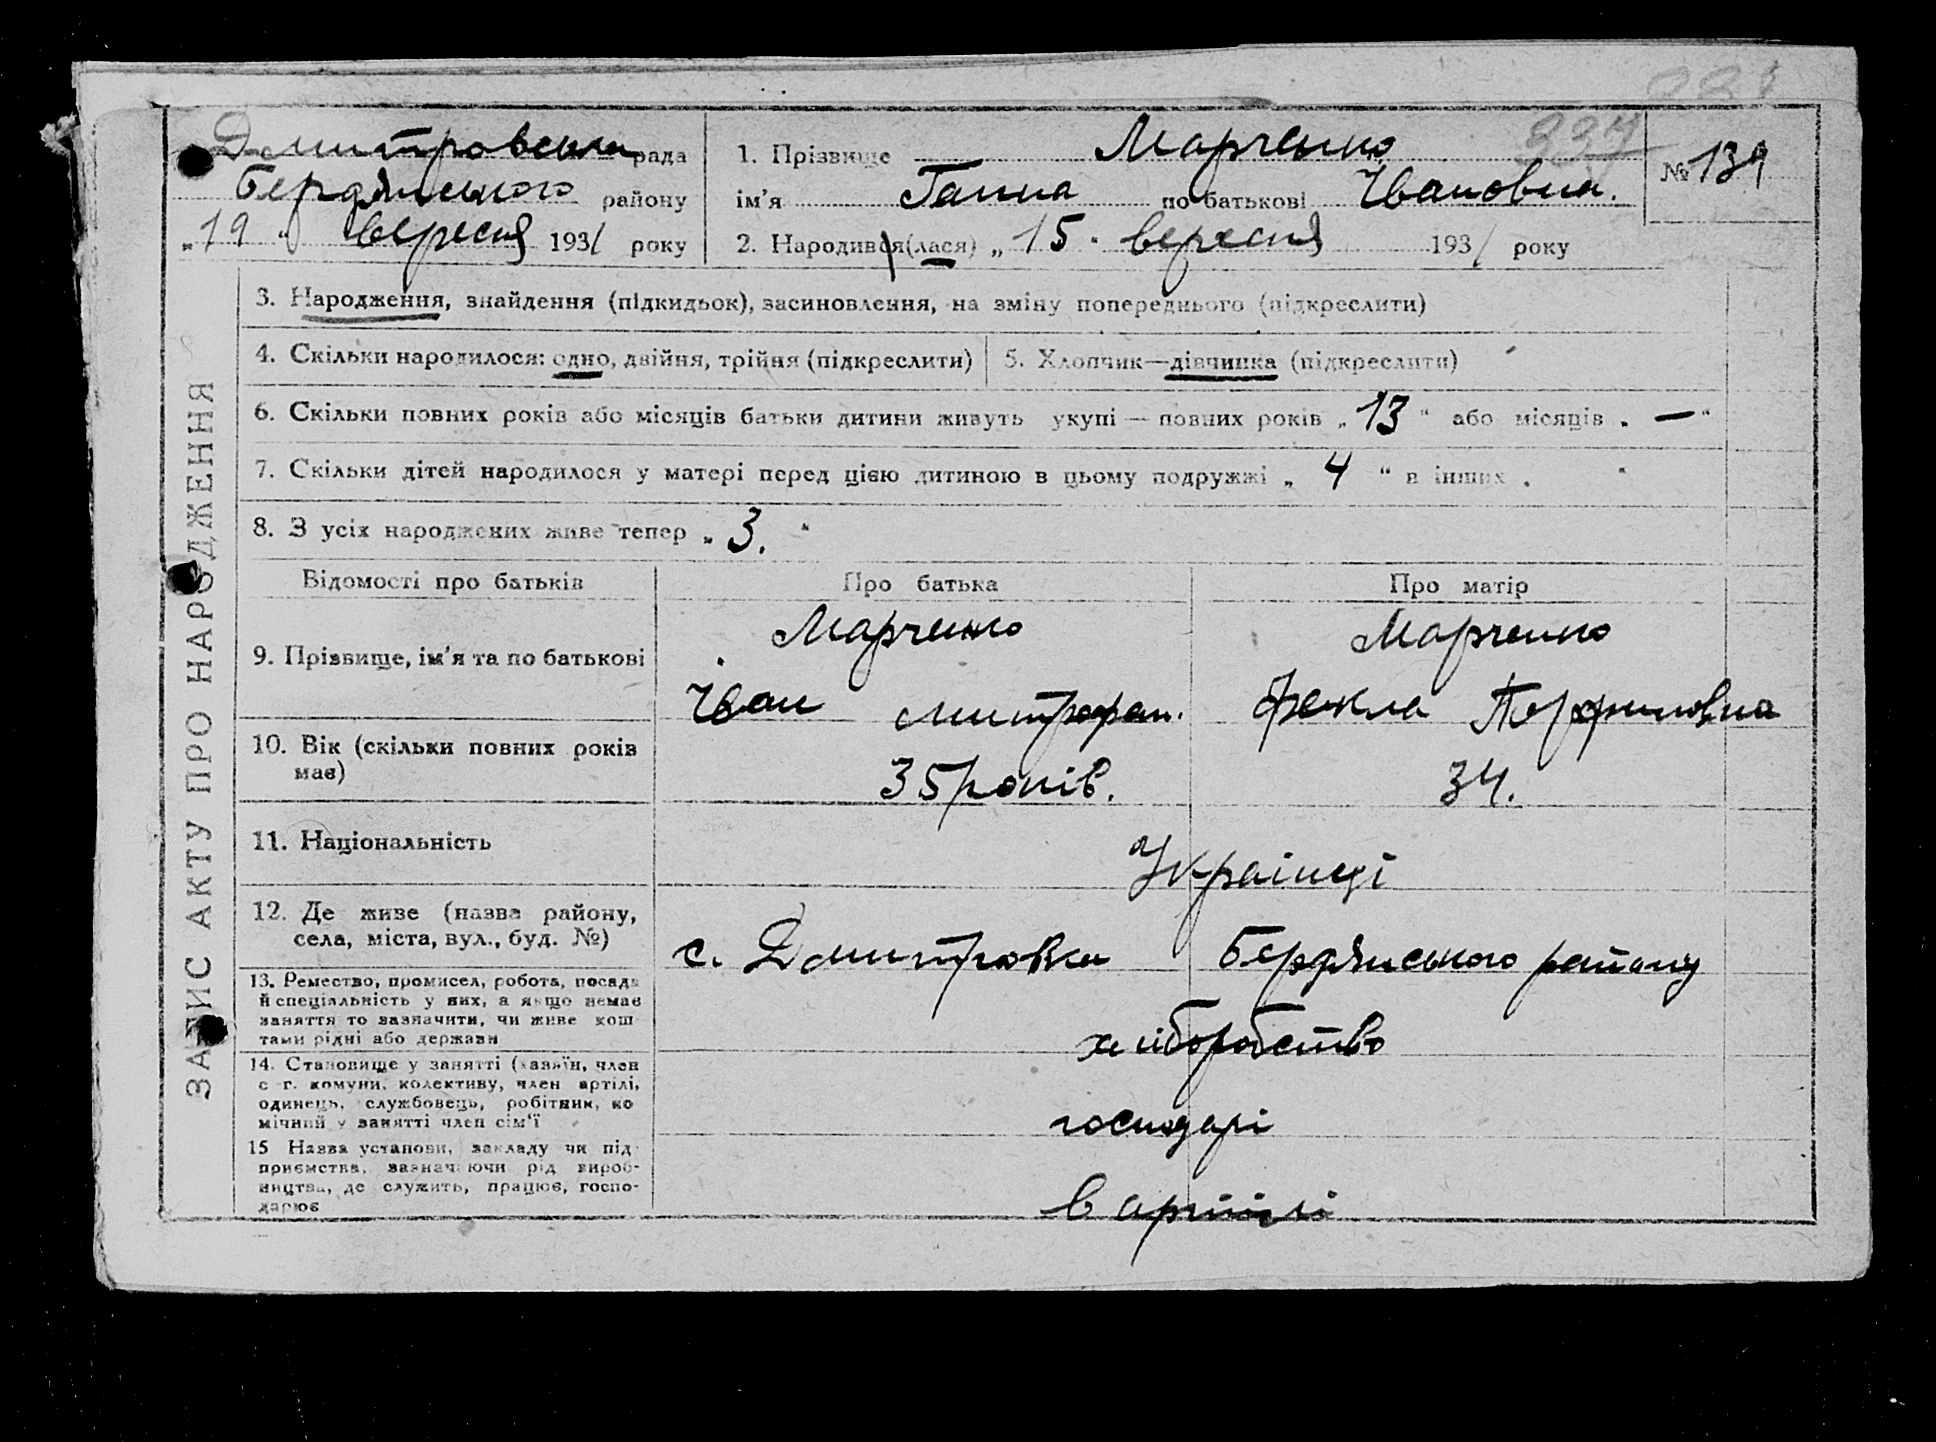 ЗАПИС АКТУ ПРО НАРОДЖЕННЯ
Дмитровська рада
Бердянського району
„19“ вересня 1931 року
1. Прізвище Марченко
ім'я Ганна по батькові Івановна.
2. Народився(лася) „15“ вересня 1931 року
337
№ 139
3. Народження, знайдення (підкидьок), засиновлення, на зміну попереднього (підкреслити)
4. Скільки народилося: одно, двійня, трійня (підкреслити)
5. Хлопчик—дівчинка (підкреслити)
6. Скільки повних років або місяців батьки дитини живуть укупі — повних років „13“ або місяців „—“
7. Скільки дітей народилося у матері перед цією дитиною в цьому подружжі „4“ в інших „ “
8. З усіх народжених живе тепер „3.“
Відомості про батьків
Про батька
Про матір
9. Прізвище, ім'я та по батькові
Марченко
Іван Митрофан.
Марченко
Фекла Порфиловна
10. Вік (скільки повних років
має)
35 років.
34.
11. Національність
Українці
12. Де живе (назва району,
села, міста, вул., буд. №)
с. Дмитровка Бердянського району
13. Ремество, промисел, робота, посада
й спеціяльність у них, а якщо немає
заняття то зазначити, чи живе кош
тами рідні або держави
хліборобство
14. Становище у занятті (хазяїн, член
с.-г. комуни, колективу, член артілі,
одинець, службовець, робітник, по
мічний у занятті член сім'ї
господарі
15 Назва установи, закладу чи під
приємства, зазначаючи рід вироб-
ництва, де служить, працює, госпо-
дарює
в артілі